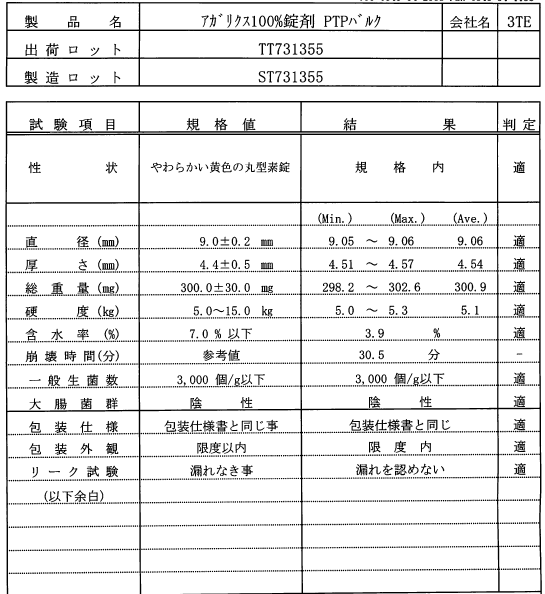 製品名 アガリクス100%錠剤 PTPバルク 会社名 3TE
出荷ロット TT731355
製造ロット ST731355
試験項目 規格値 結果 判定
性状 やわらかい黄色の丸型素錠 規格内 適
(Min.) (Max.) (Ave.)
直径(mm) 9.0±0.2 mm 9.05 ～ 9.06 9.06 適
厚さ(mm) 4.4±0.5 mm 4.51 ～ 4.57 4.54 適
総重量(mg) 300.0±30.0 mg 298.2 ～ 302.6 300.9 適
硬度(kg) 5.0～15.0 kg 5.0 ～ 5.3 5.1 適
含水率(%) 7.0 % 以下 3.9 % 適
崩壊時間(分) 参考値 30.5 分 -
一般生菌数 3,000 個/g以下 3,000 個/g以下 適
大腸菌群 陰性 陰性 適
包装仕様 包装仕様書と同じ事 包装仕様書と同じ 適
包装外観 限度以内 限度内 適
リーク試験 漏れなき事 漏れを認めない 適
(以下余白)